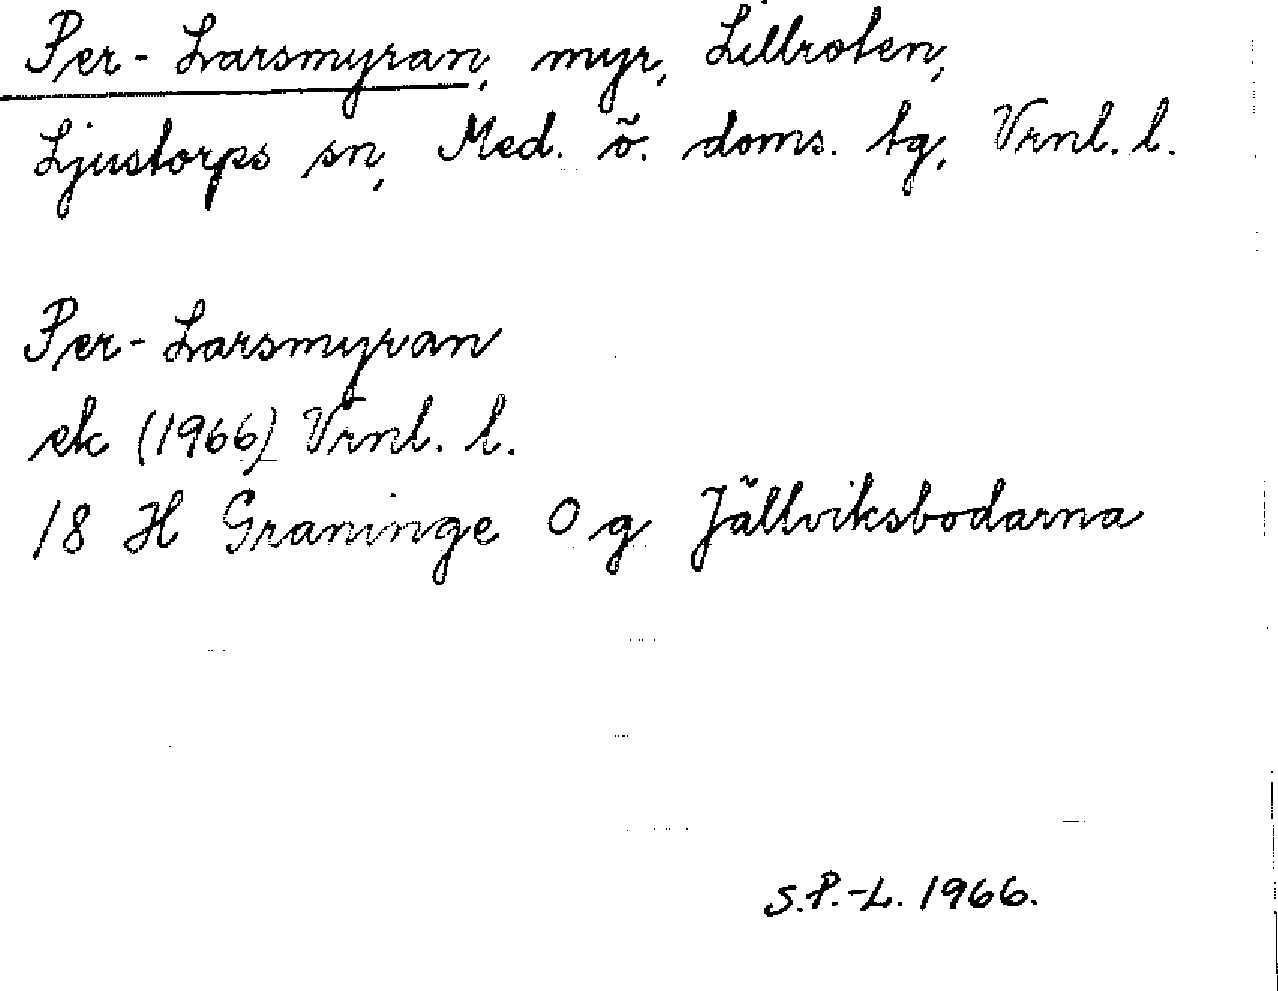 Per-Larsmyran, myr, Lillroten,
Ljustorps sn, Med. ö. doms. tg, Vrnl. l.
Per-Larsmyran
ek (1966) Vrnl. l.
18 H Graninge 0 g Jällviksbodarna
S.P.-L. 1966.